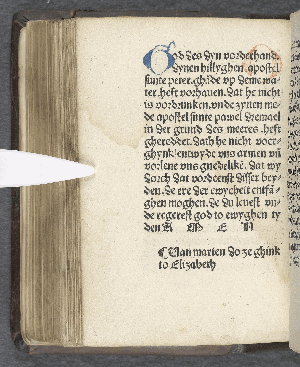 God des dyn vorderhand.
dynen hillyghen apostel
sunte peter. ghande vp deme wa-
ter. heft vorhauen. Dat he nicht
is vordrunken. vnde dynen me-
de apostel sunte pawel dremael
in der grund des meeres. heft
gereddet. Dath he nicht
vns armen vn
vorlene vns gnedelike. Dat wy
dorch dat vordeenst disser bey-
den. De ere der ewycheit entfa-
ghen moghen. De du leuest vn-
de regerest god to ewyghen ty
den A M E N
Uan marien do ze ghink
to Elizabeth